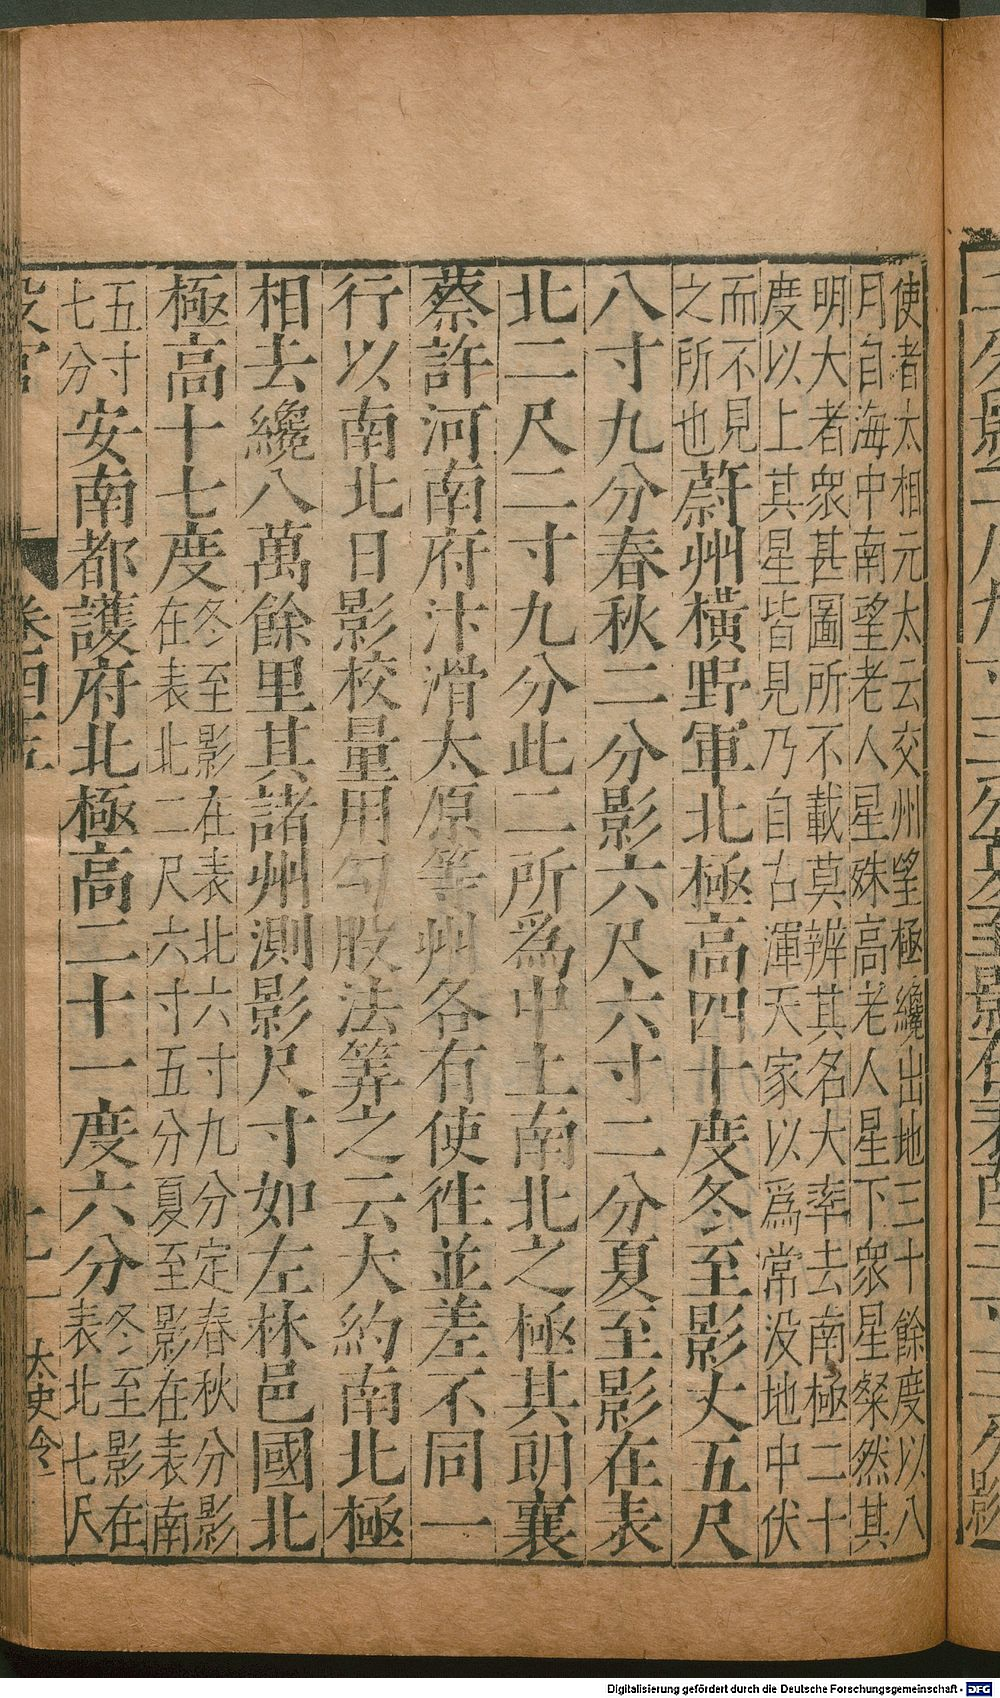 使者太相元太云交州望極纔出地三十餘度以八
月自海中南望老人星殊高老人星下衆星粲然其
明大者衆甚圖所不載莫辨其名大率去南極二十
度以上其星皆見乃自古渾天家以爲常没地中伏
而不見
之所也
蔚州橫野軍北極高四十度冬至影丈五尺
八寸九分春秋二分影六尺六寸二分夏至影在表
北二尺二寸九分此二所爲中土南北之極其朗襄
蔡許河南府汴滑太原等州各有使徃並差不同一
行以南北日影校量用勾股法筭之云大約南北極
相去纔八萬餘里其諸州測影尺寸如左林邑國北
極高十七度
冬至影在表北六寸九分定春秋分影
在表北二尺六寸五分夏至影在表南
五寸
七分
安南都護府北極高二十一度六分
冬至影在
表北七尺
職官
卷四五
十一
太史令
Digitalisierung gefördert durch die Deutsche Forschungsgemeinschaft - DFG